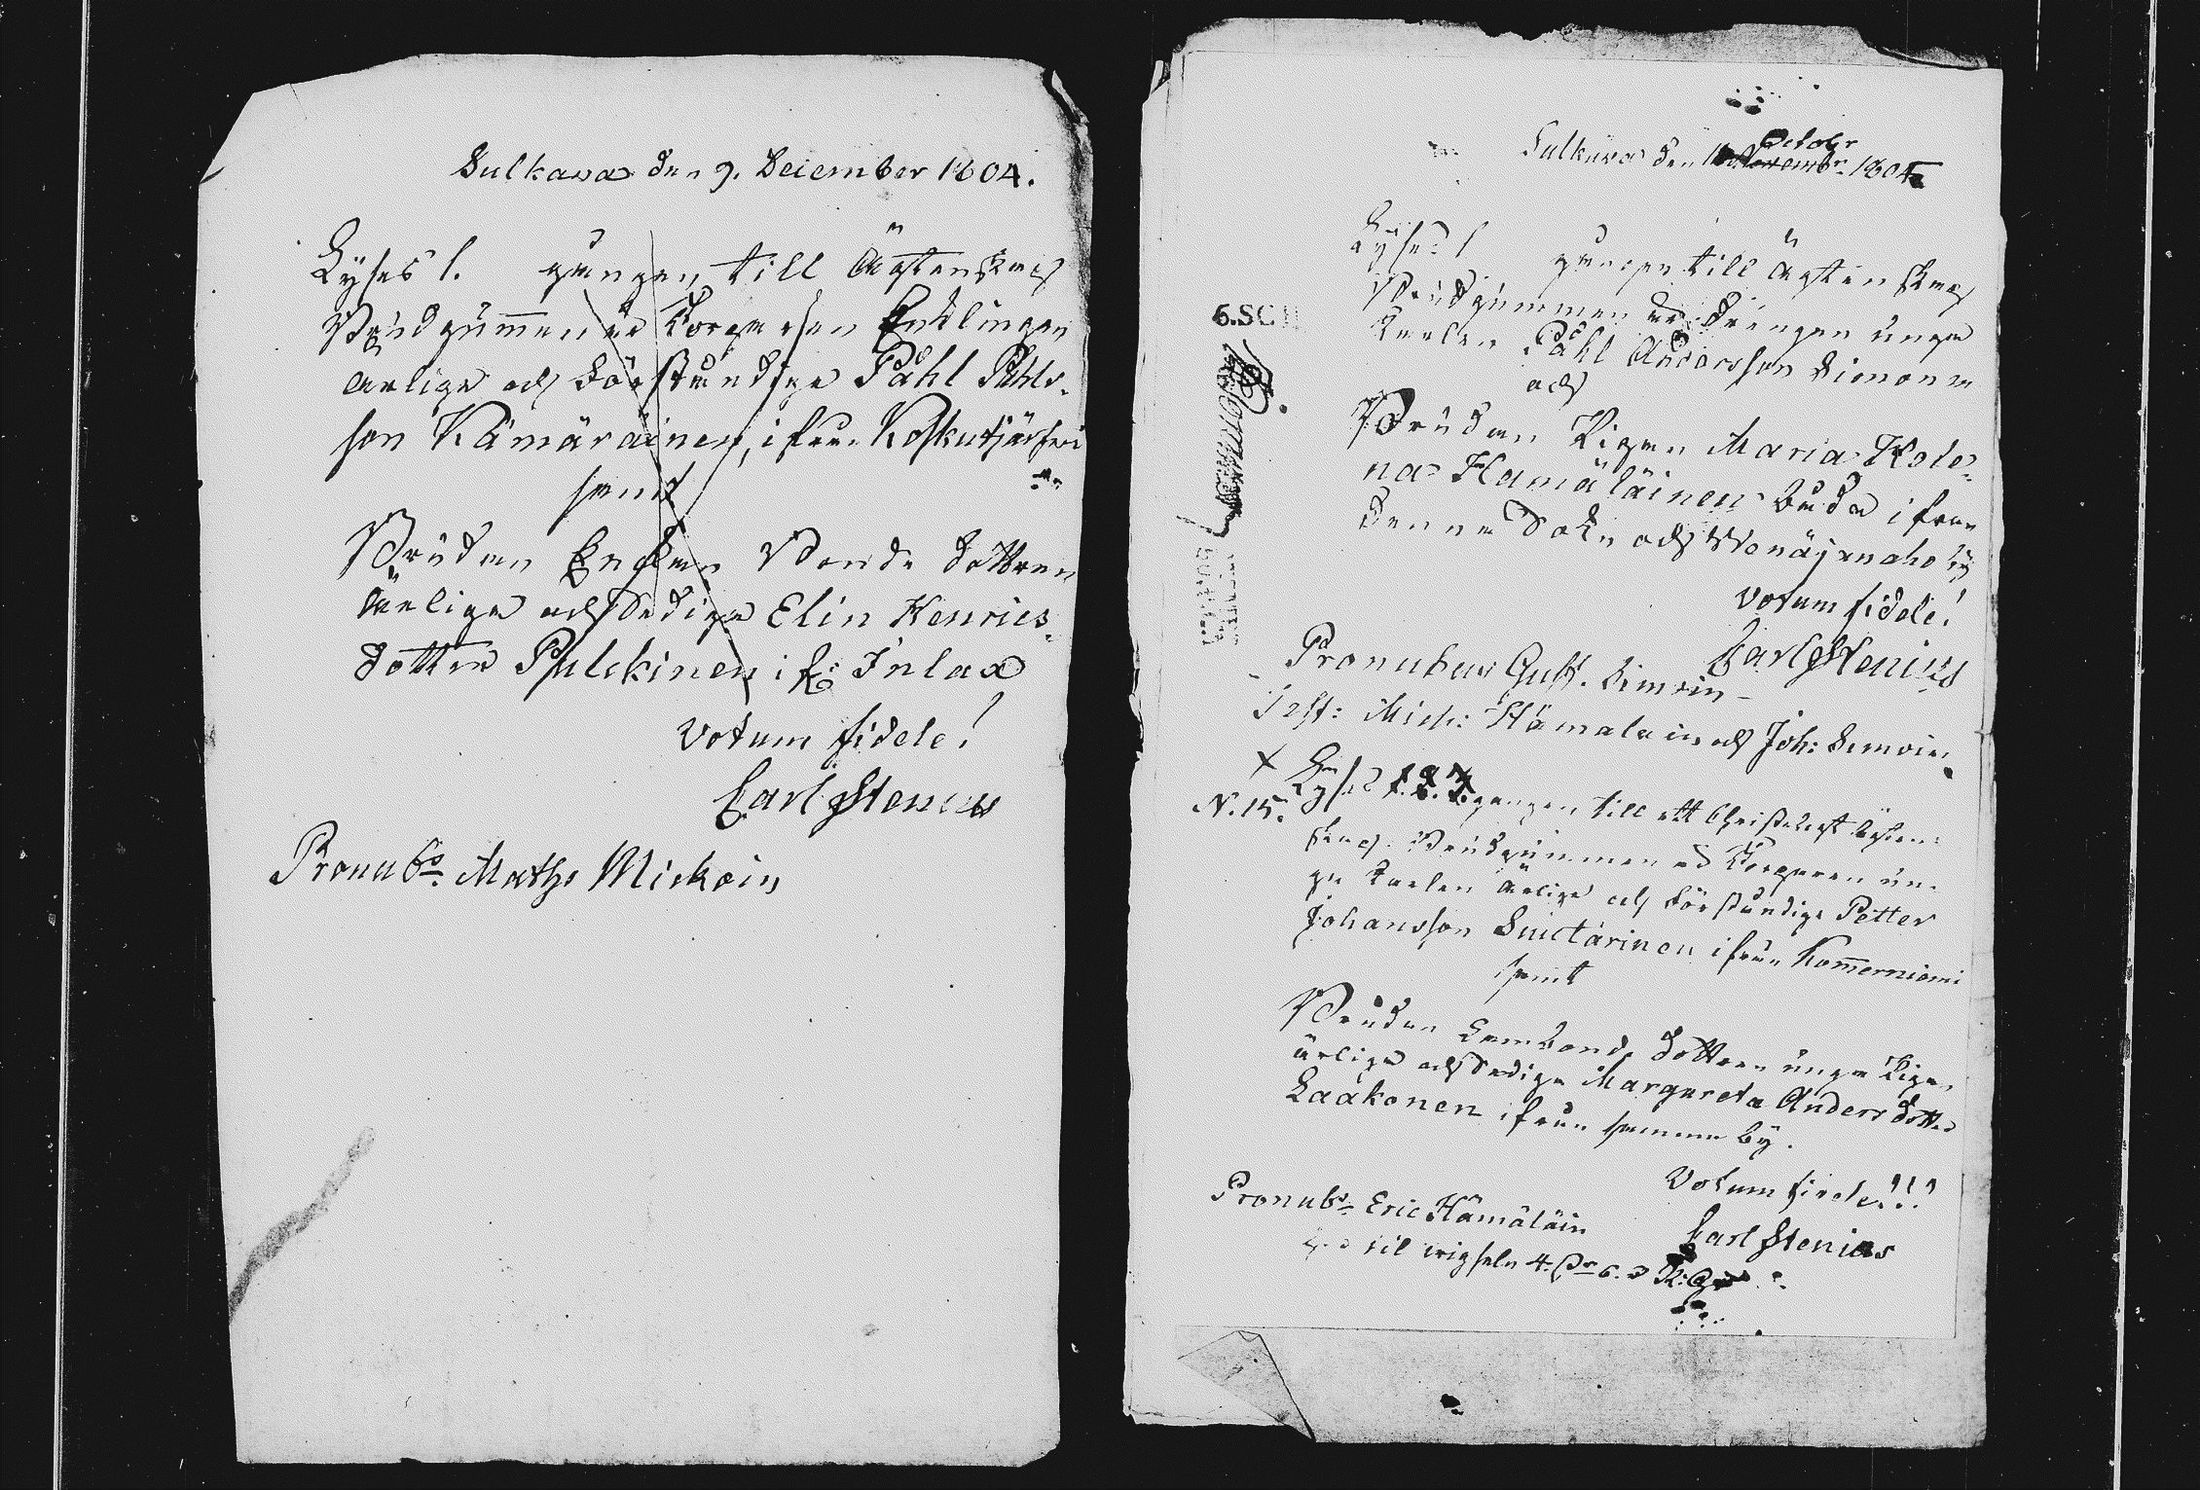 Sulkava den 9. December 1804.
Lyses 1. gången till Ägtenskap
Brudgummen är Torparsen Enklingen
ärlige och förståndige Påhl Påhls-
son Kämäräinen, ifrån Koskutjärfwi
samt
Bruden Enkan Bonde dottren
ärliga och Sediga Elin Henrics
dotter Pulckinen if: Inlax
Votum fidele!
Carl Stenius
Pronubs. Maths Mickoin
Sulkava den 11 October Novembr. 1804
Lyses 1 gången till Ägtenskap
Brudgummen är Drängen unge
Karlen Påhl Andersson Simonen
och
Bruden Pigan Maria Hele-
na Hämäläinen båda ifrån
denna Sokn och Wenäjenaho by
Votum fidele!
Carl Stenius
6.SC
Pronubus Gust. Simoin
Test: Mich: Hämäläin och Joh: Simoin
X Lyses 1. 2. 3. gången till ett Christeligt Ägten-
N. 15. skap. Brudgummen är Torparen un-
ge Karlen ärlige och förståndige Petter
Johansson Suictarinen ifrån Kommerniemi
samt
Bruden Lambonde dottren unga Pigan
ärliga och Sediga Margareta Anders dotter
Laakonen ifrån samma by.
Votum fidele!!!
Pronubs. Eric Hämäläin
Carl Stenius
til wigseln 4. 6.